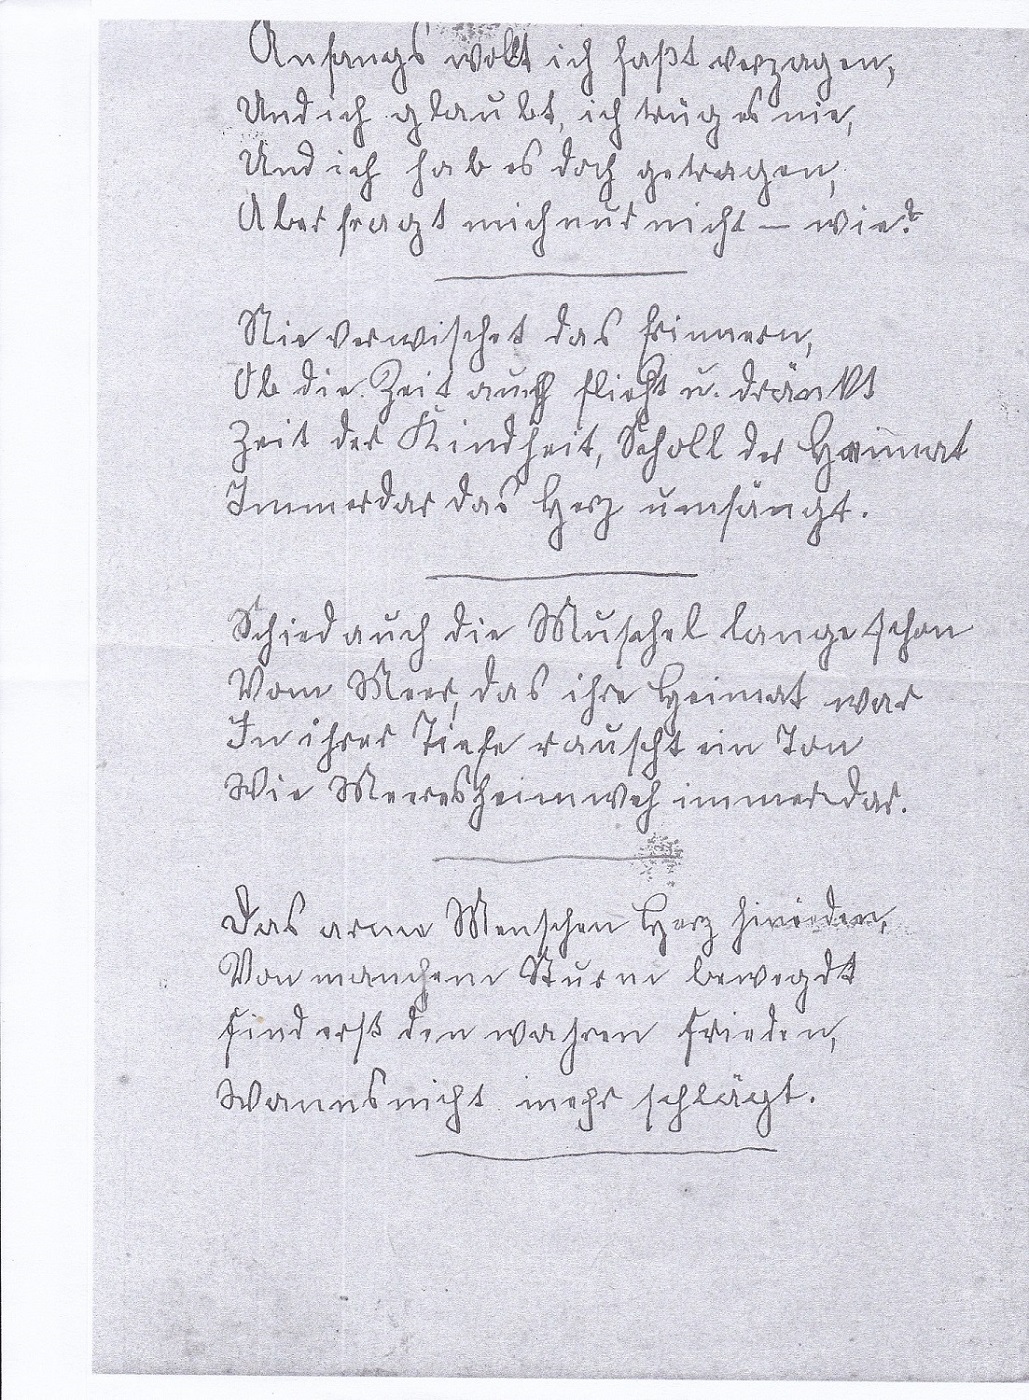 Anfangs wollt ich faßt verzagen,
Und ich glaubt, ich trüg es nie,
Und ich hab es doch getragen,
Aber fragt mich nur nicht – wie?
Nie verwischet das Erinnern,
Ob die Zeit auch flieht u. dränkt
Zeit der Kindheit, Scholl der Heimat
Immerdar das Herz umfängt.
Schied auch die Muschel lange schon
Vom Meer, das ihre Heimat war
In ihrer Tiefe rauscht ein Ton
Wie Meeresheimweh immerdar.
Das arme Menschen Herz hinieden,
Von manchem Sturm bewegdt
Find erst den wahren Frieden,
Wanns nicht mehr schlägt.